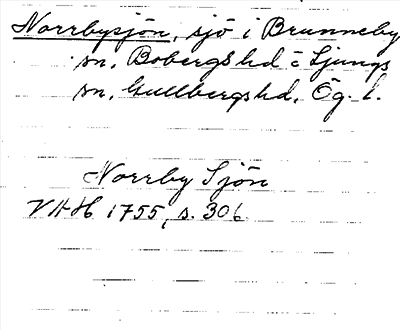 Norrbysjön, sjö i Brunneby
sn, Bobergs hd o Ljungs
sn, Gullbergs hd, Ög. l.
Norrby Sjön
VAH 1755, s. 306.